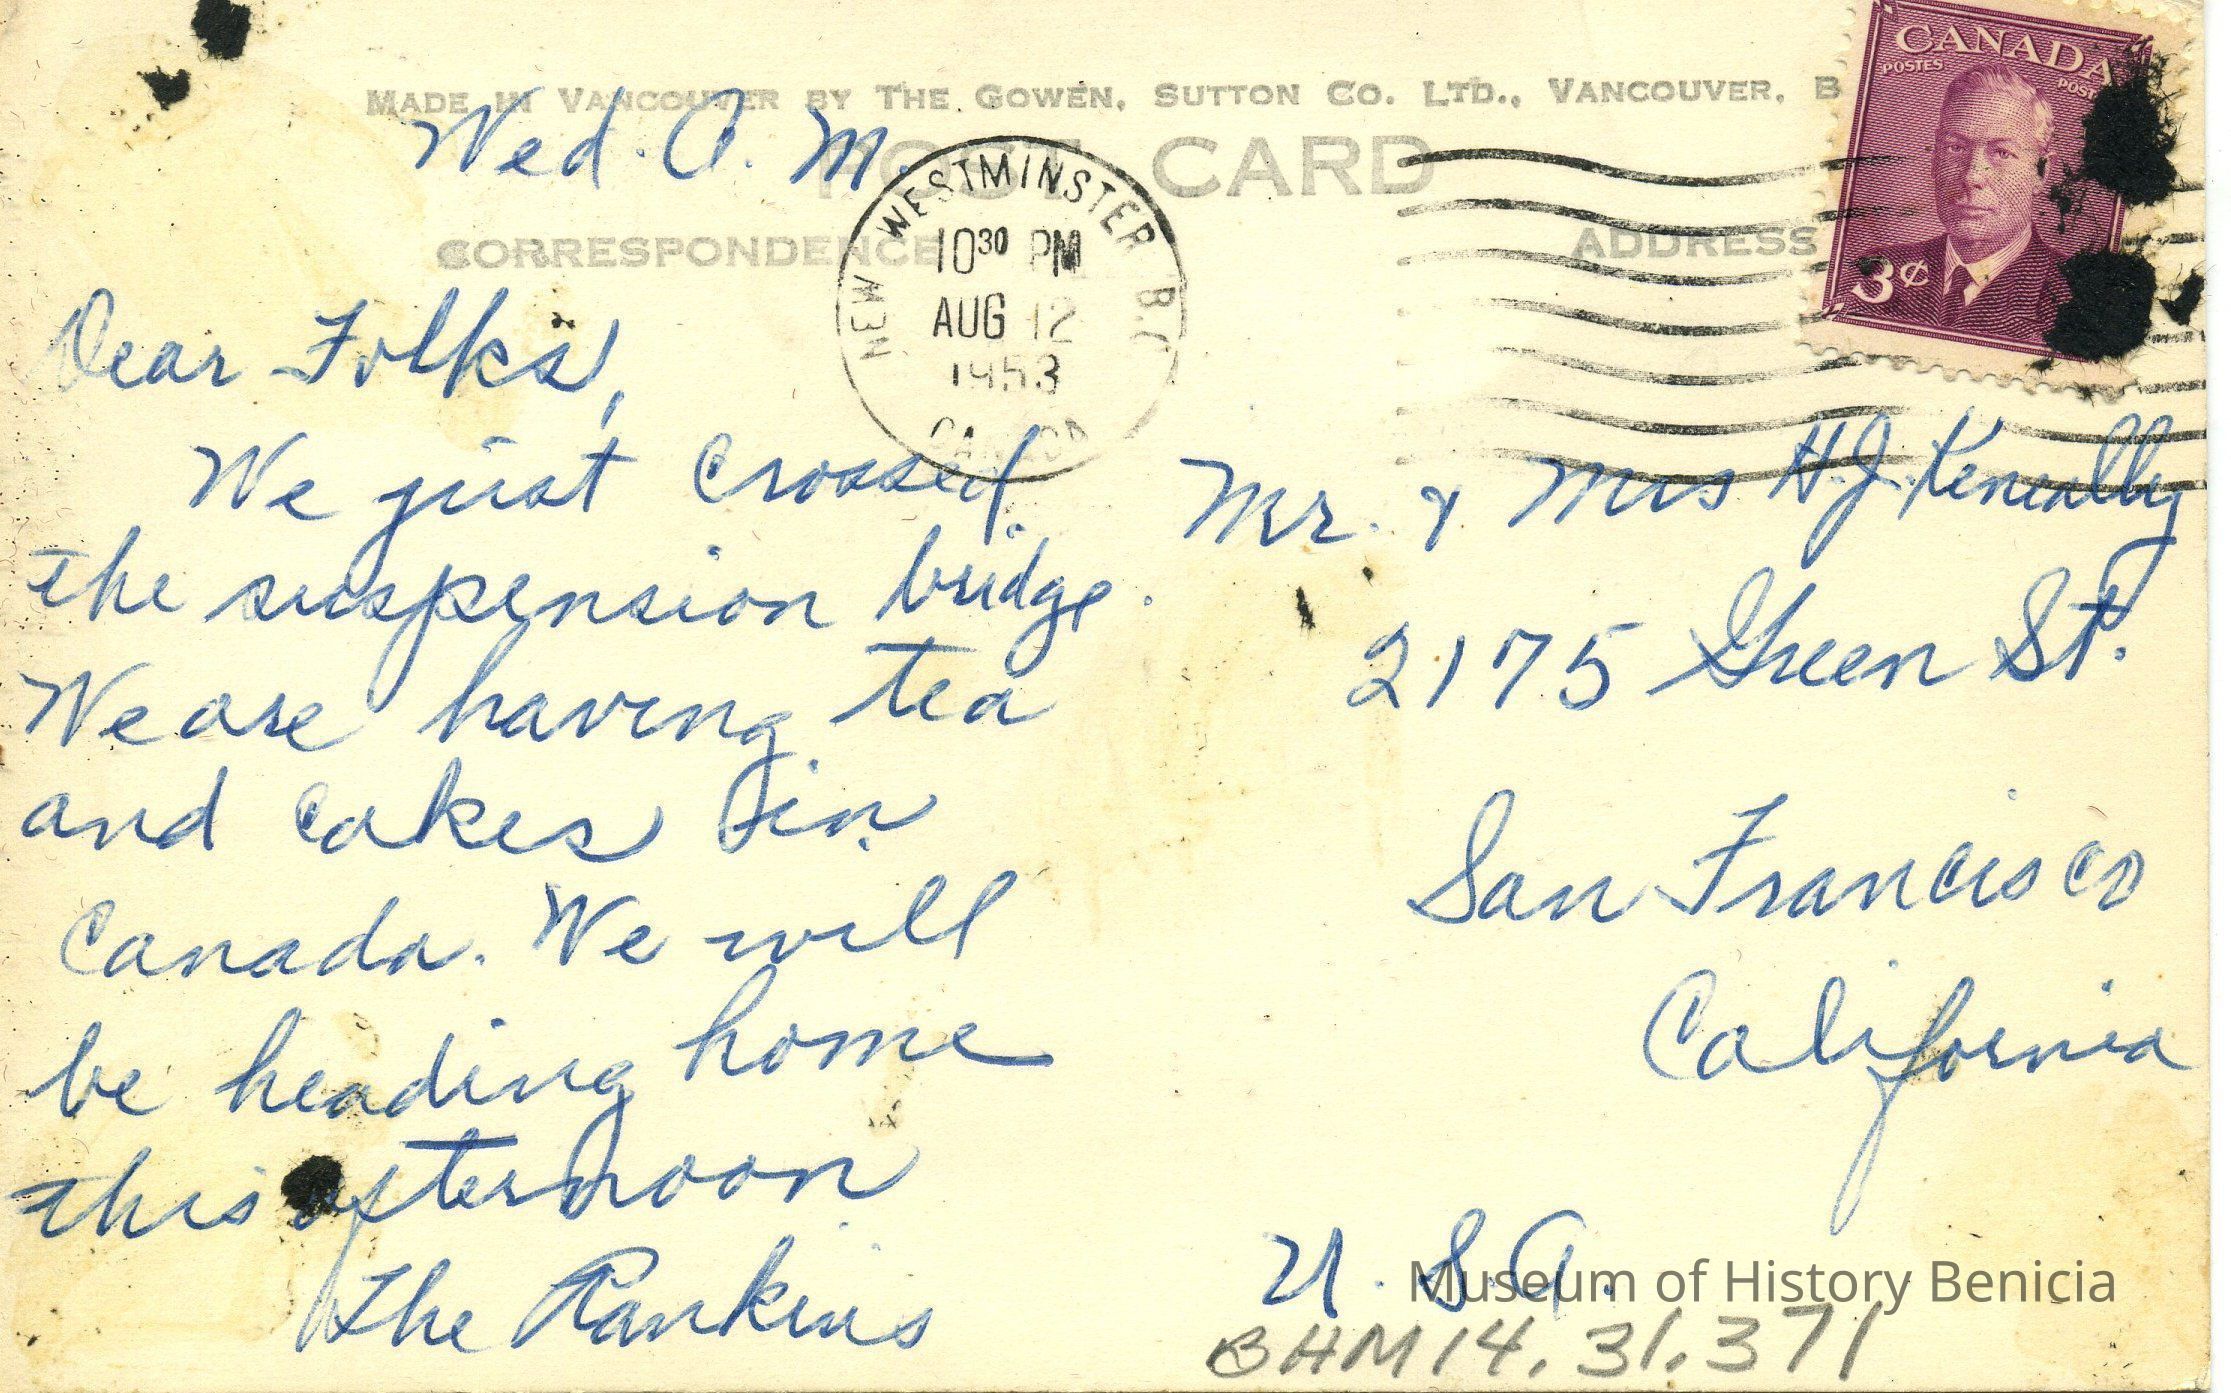 MADE IN VANCOUVER BY THE GOWEN, SUTTON CO. LTD., VANCOUVER, B
POST CARD
CORRESPONDENCE
ADDRESS
CANADA
POSTES
3¢
NEW WESTMINSTER B.C.
10 30 PM
AUG 12
1953
CANADA
Wed. A. M.
Dear Folks,
We just crossed
the suspension bridge.
We are having tea
and cakes in
Canada. We will
be heading home
this afternoon
The Rankins
Mr. & Mrs H.J. Keneally
2175 Green St.
San Francisco
California
U. S. A.
Museum of History Benicia
BHM14.31.371